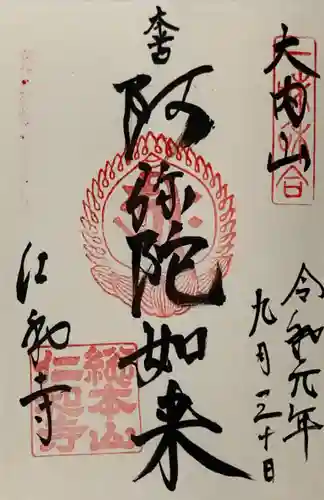 大内山
本尊
阿弥陀如来
仁和寺
総本山
仁和寺
令和元年
九月三十日